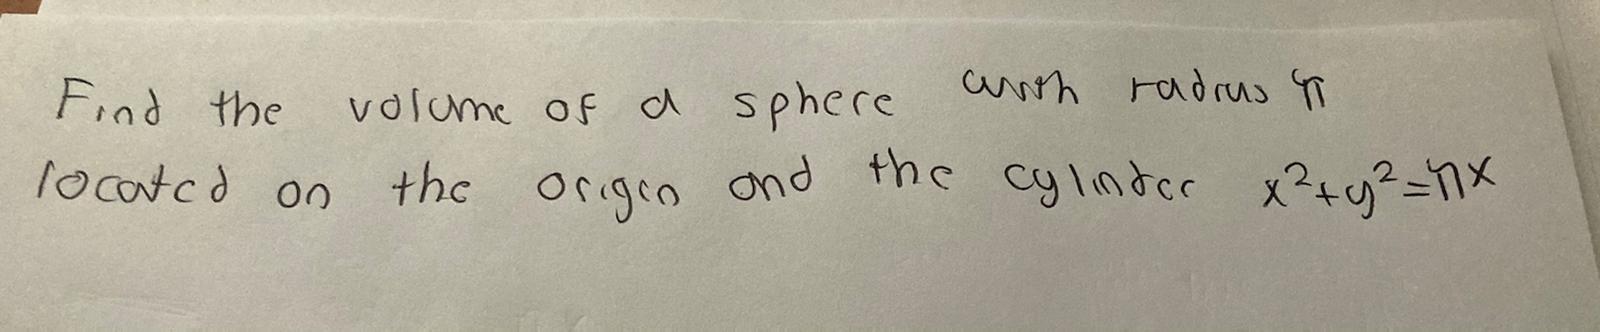 Find the volume of a sphere with radius π
located on the origin and the cylinder x²+y²=πx